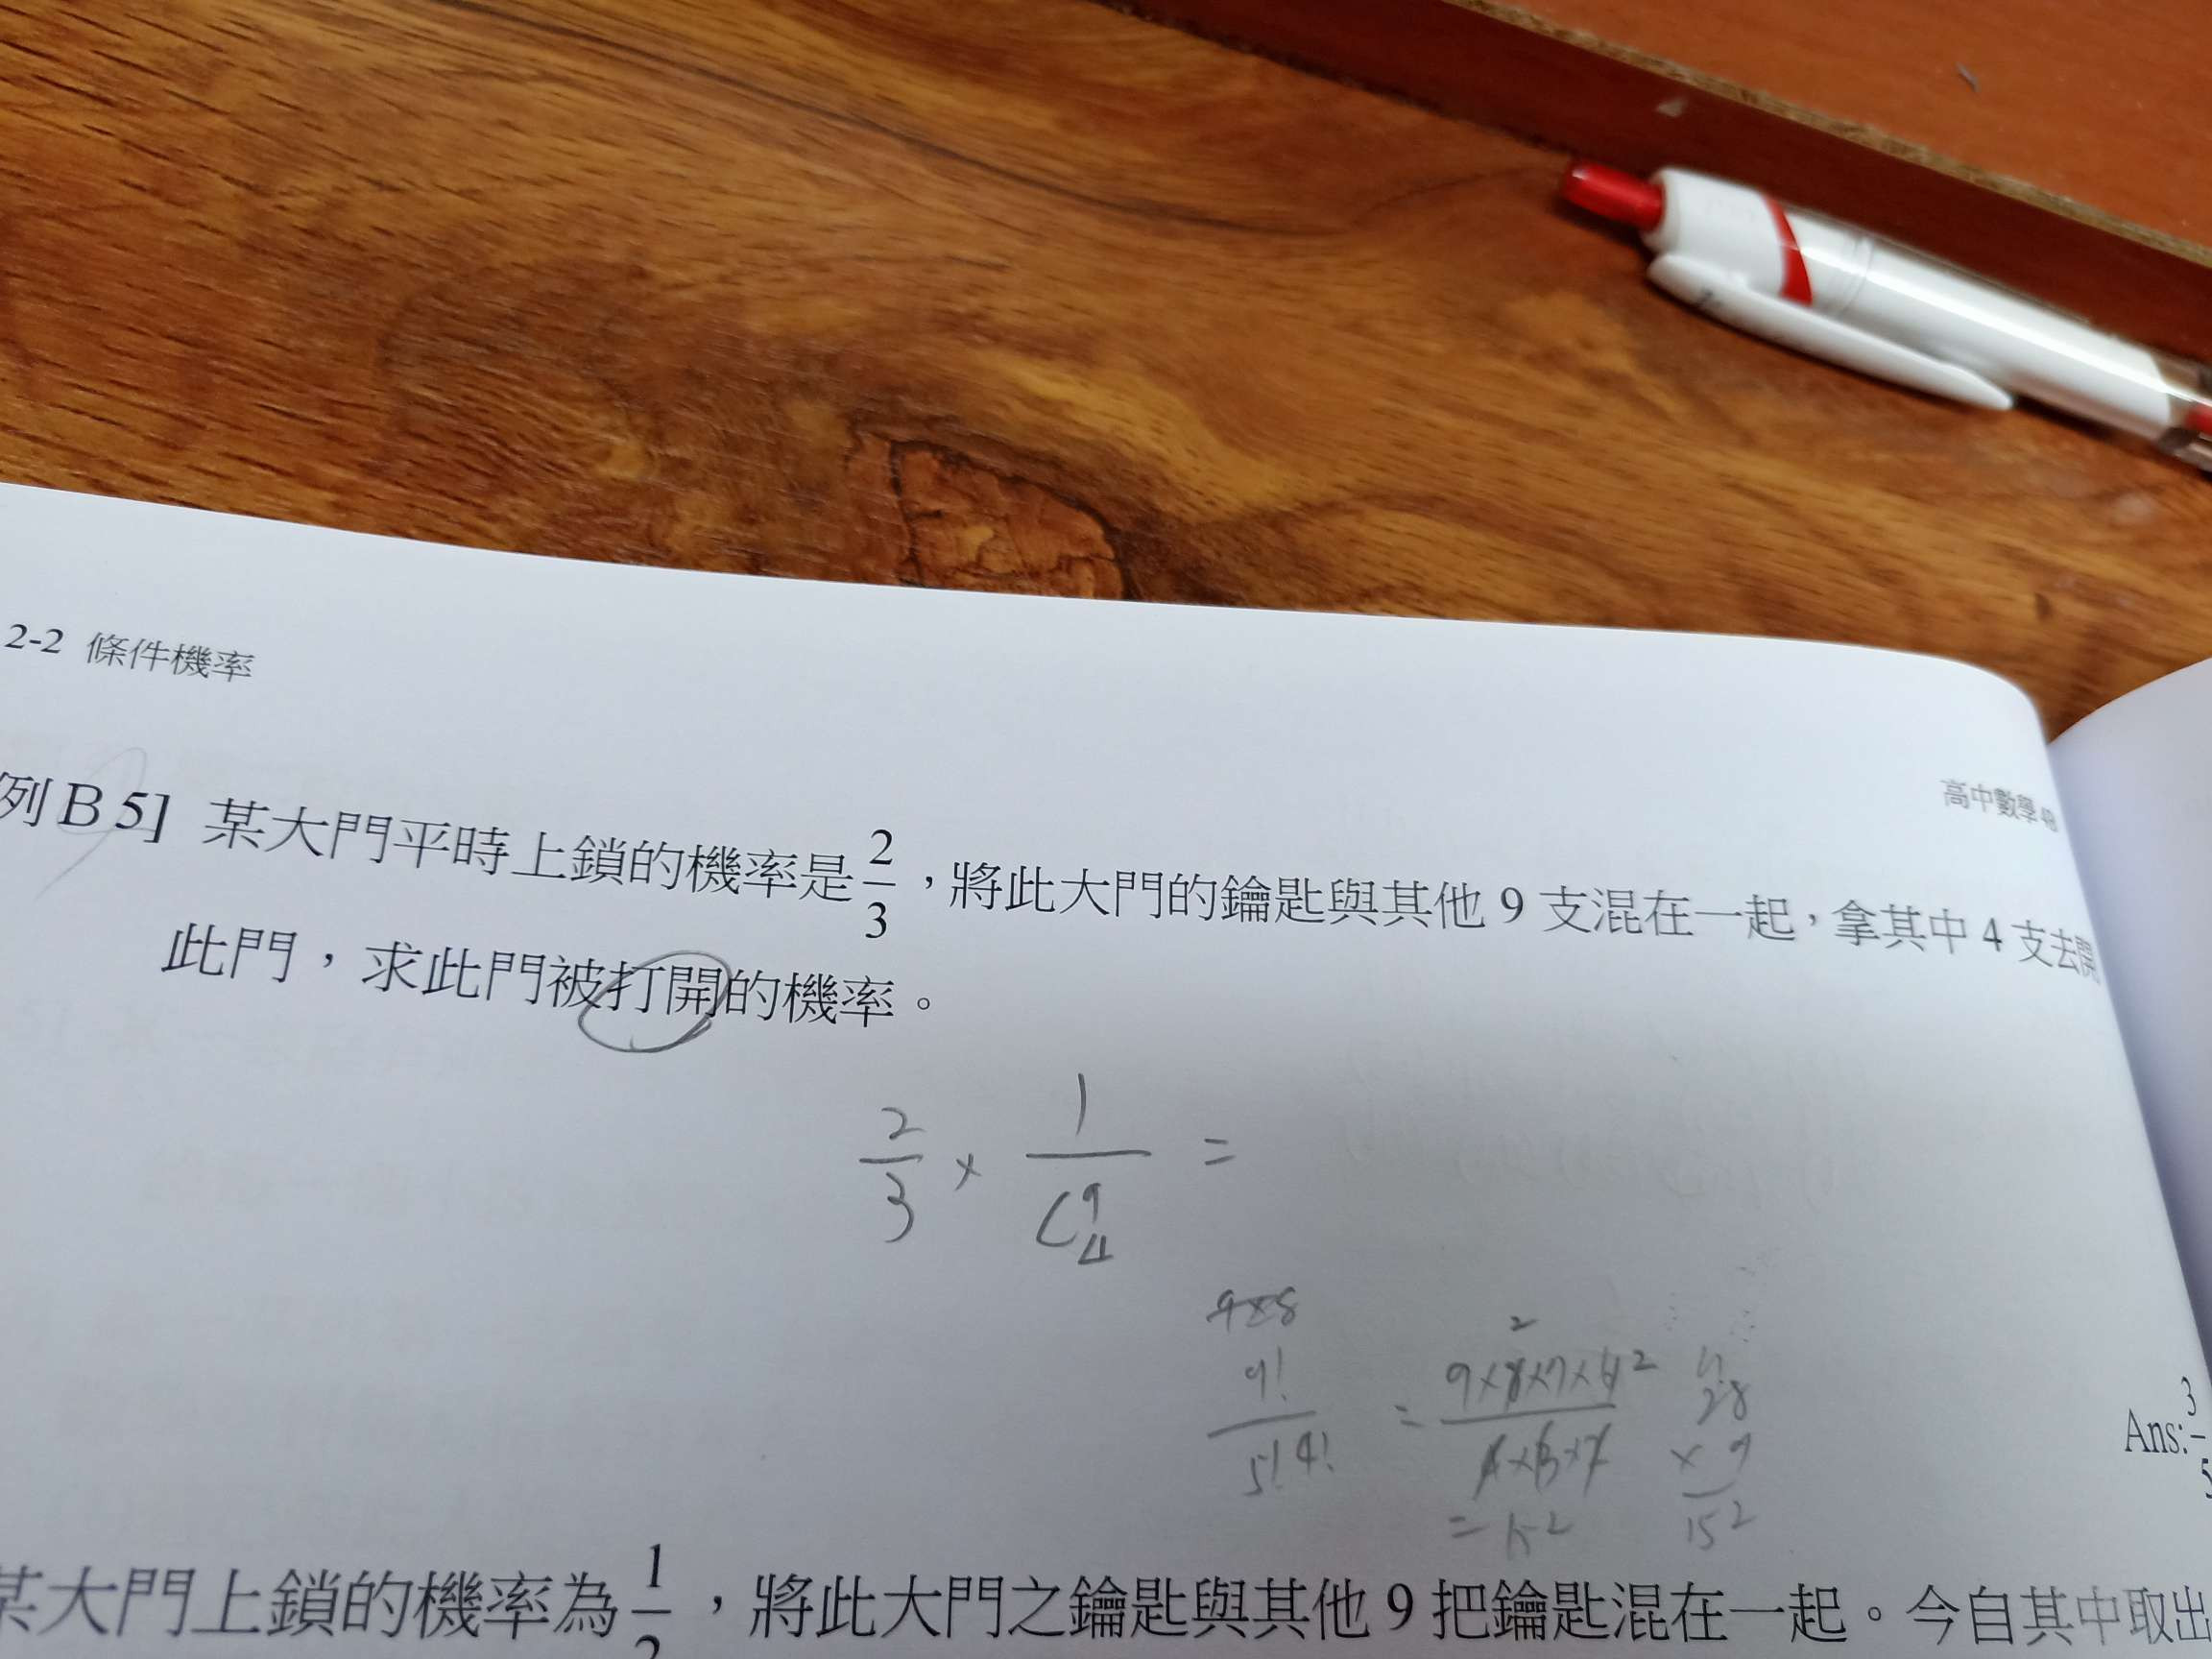 2-2 條件機率
高中數學 4B
例 B 5] 某大門平時上鎖的機率是 2/3 ,將此大門的鑰匙與其他 9 支混在一起,拿其中 4 支去開
此門,求此門被打開的機率。
2/3 × 1/C⁹₄ =
9×8
9!/5!4! = 9×8×7×6/4×3×2
2
2
28
× 9
152
= 152
Ans: 3/5
某大門上鎖的機率為 1/2 ,將此大門之鑰匙與其他 9 把鑰匙混在一起。今自其中取出